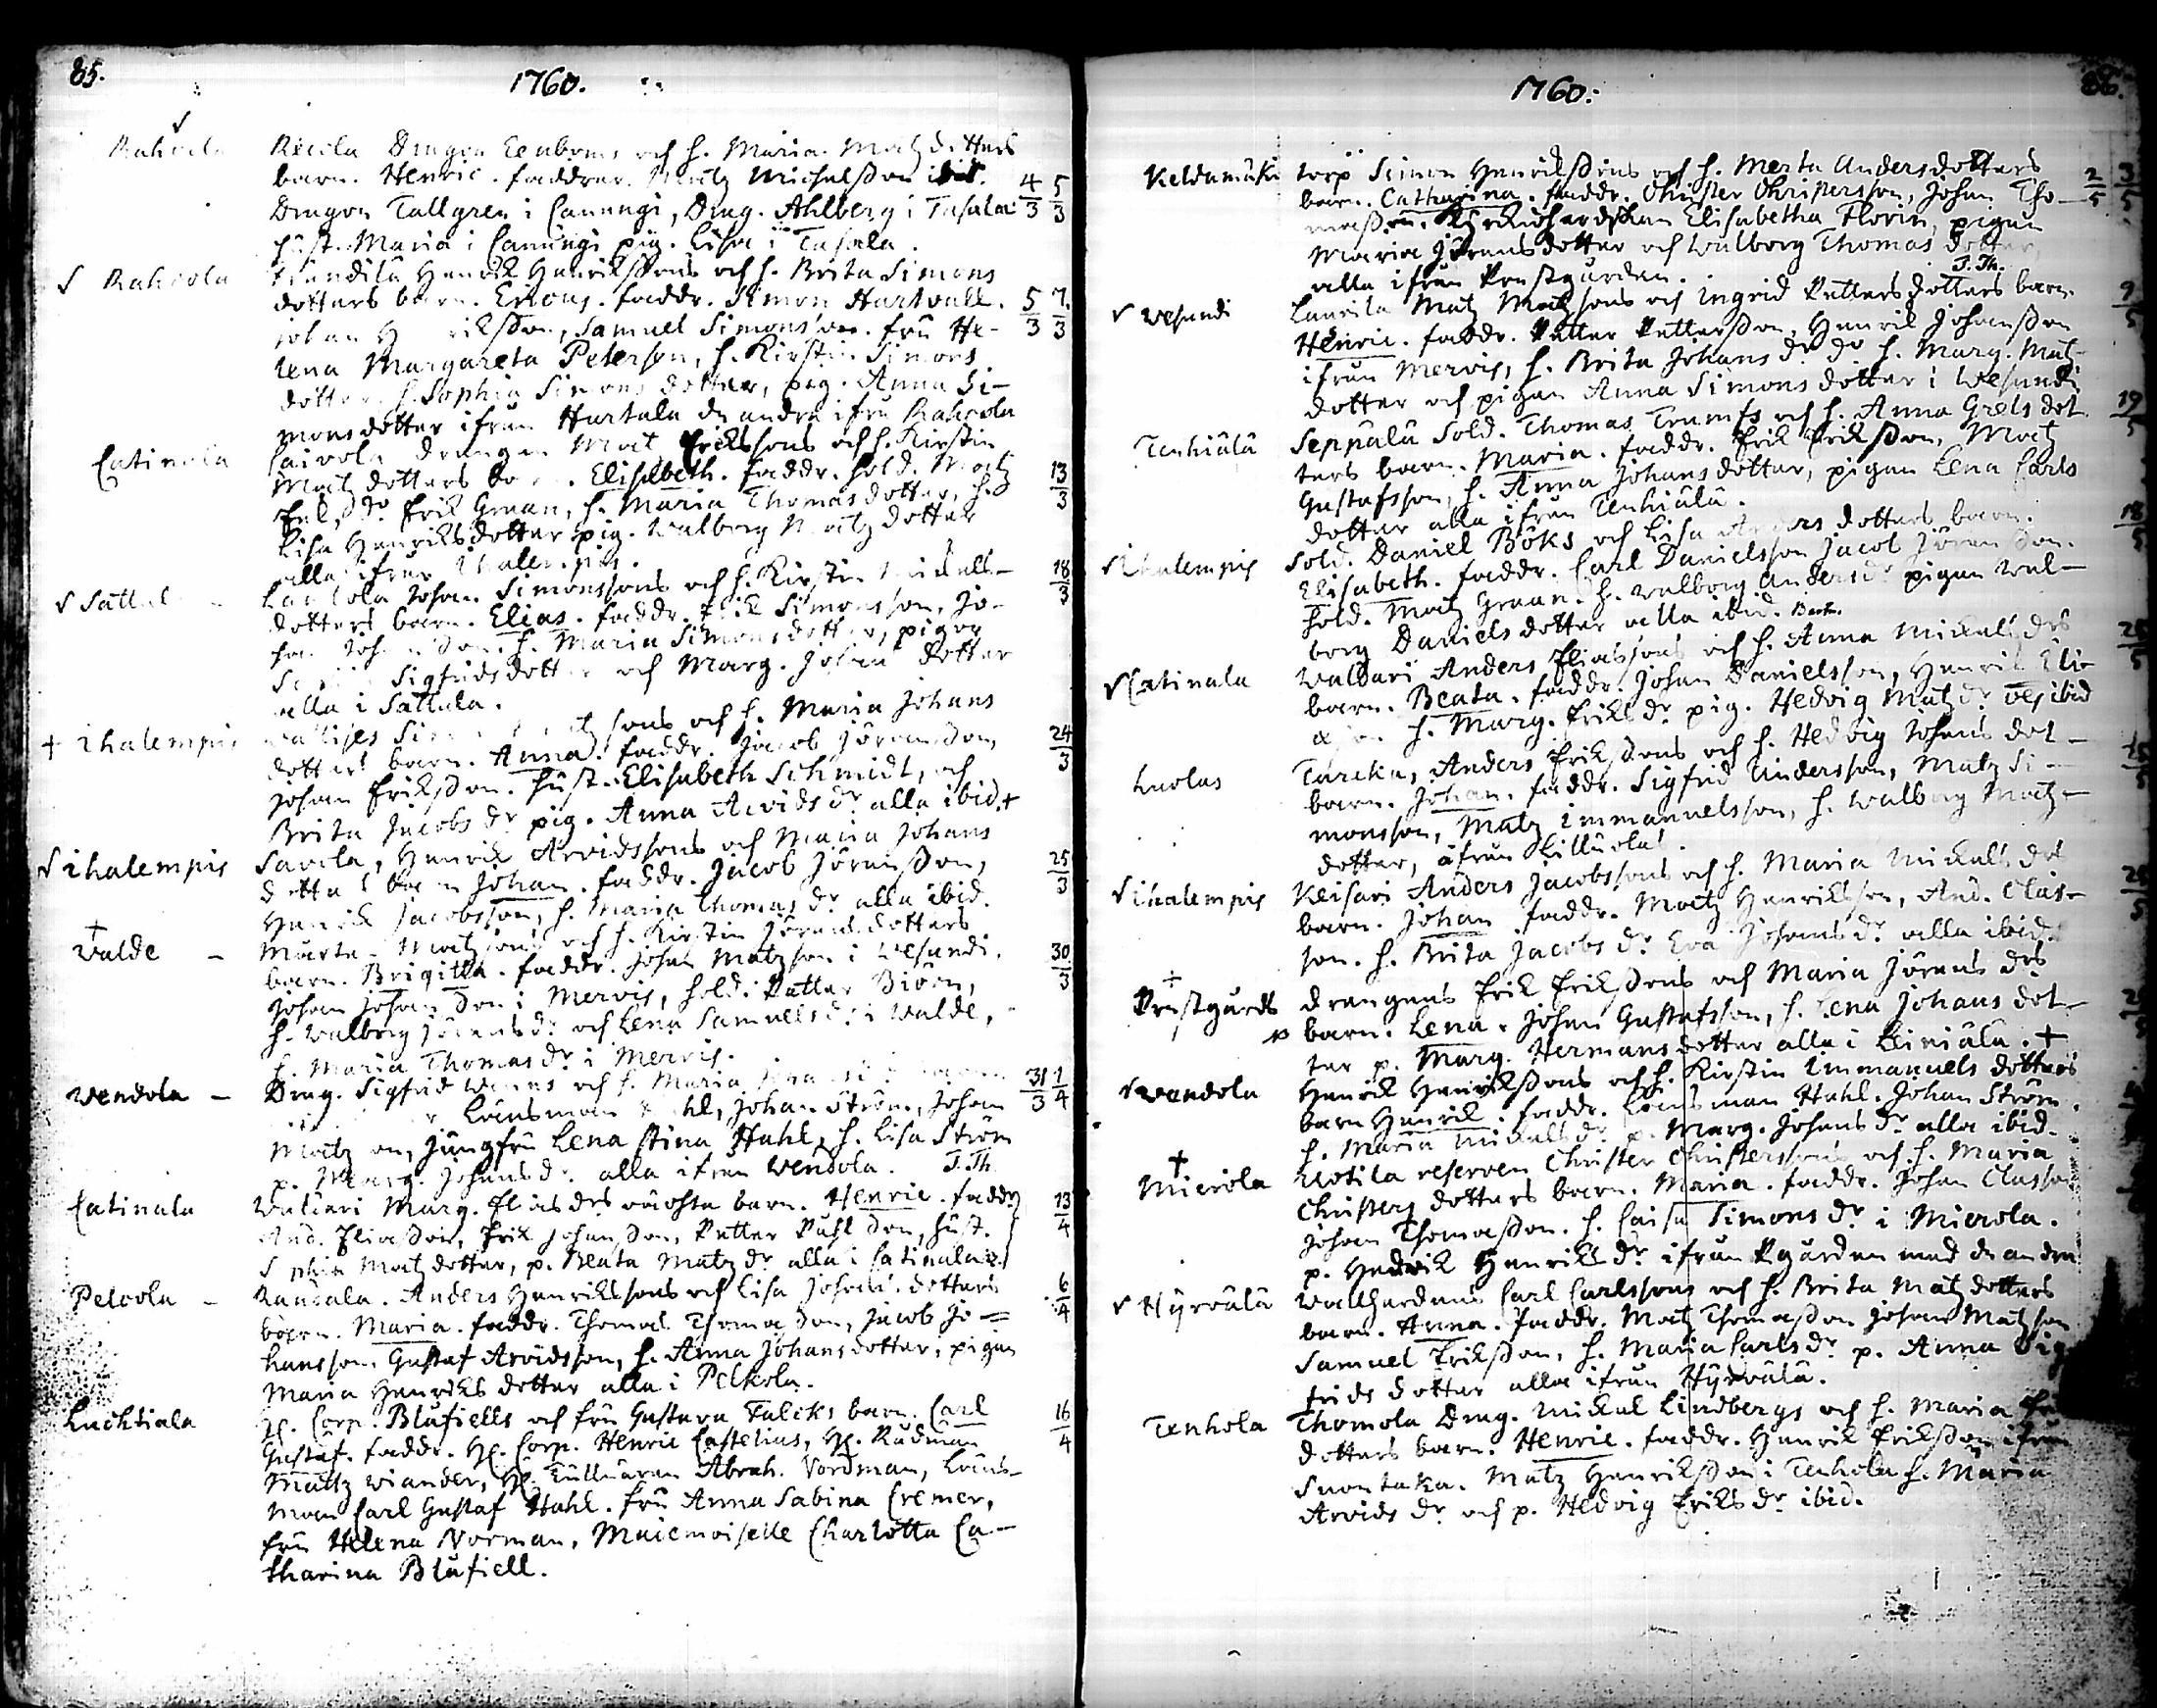 85.
1760.
Rahcola Recola Dragon Eenboms och h. Maria Matzdotters
barn. Henric. faddrar. Matz Michelsson ibid. 4/3 5/3
Dragon Tallgren i Canungi, Drag. Ahlberg i Tasala
hust. Maria i Canungi pig. Lisa i Tasala.
Rahcola Henrich Henrichssons och h. Brita Simons
dotters barn. Ericus. faddr. Simon Hartvall. 5/3 7/3
johan H riksson, Samuel Simonsson. fru He-
lena Margareta Peterson, h. Kirstin Simons
dotter. h. Sophia Simons dotter, pig. Anna Si-
mons dotter ifrån Hartala de andra ifrå Rahcola
Catinala Caivola drengen Matz Erikssons och h. Kirstin
Matz dotters barn. Elisabeth. faddr. Sold. Matz 13/3
do Erik Graan, h. Maria Thomasdotter, h.
Lisa Henriksdotter pig. Walborg Matz dotter
alla ifrån
Sattul Johan Simonssons och h. Kirstin Mickells- 18/3
dotters barn. Elias. faddr. Erik Simonsson, Jo-
han Joh son. h. Maria Simonsdotter, pigor
Sigfridsdotter och Marg. Johans dotter
alla i Sattula.
+ ihalempis sons och h. Maria Johans
dotters barn. Anna. faddr. Jacob Jöransson, 24/3
Johan Eriksson. hust. Elisabeth Schmidt, och
Brita Jacobs dr pig. Anna Arvids dr alla ibid. +
ihalempis Savela, Henrik Arvidssons och Maria Johans
dotters barn Johan. faddr. Jacob Jöransson, 25/3
Henrik Jacobsson, h. Maria Thomas dr alla ibid.
+
Walde – Marta Matzsons och h. Kirstin Jöransdotters
barn. Brigitta. faddr. Johan Matzson i Wesundi. 30/3
Johan Johansson i Mervis, Sold. Petter Biörn,
h. Walborg Jörans dr och Lena Samuels dr i Walde,
h. Maria Thomas dr i Mervis.
Wendola – Drag. Sigfrid och h. Maria 31/3 1/4
Länsman Hahl, Johan Ström, Johan
Matzson, Jungfru Lena Stina Hahl, h. Lisa Ström
p. Marg. Johans dr alla ifrån Wendola. T. Th.
Catinala Waldari Marg. Elias drs oächta barn. Henric. faddr. 13/4
And. Eliasson, Erik Johansson, Petter son, hust.
Matz dotter, p. Beata Matz dr alla i Catinala
Pelcola – Raucala. Anders Henrikssons och Lisa Johans dotters 6/4
barn. Maria. faddr. Thomas Thomasson, Jacob Jo-
hansson, Gustaf Arvidsson, h. Anna Johansdotter, pigan
Maria Henriks dotter alla i Pelkola.
Luchtiala H. Corp. Blåfiells och fru Gustava Falcks barn. Carl 16/4
Gustaf. faddr. H. Corp. Henric Castelius, H. Rådman
Mattz Wiander, H. Tullnären Abrah. Nordman, Läns-
man Carl Gustaf Hahl. fru Anna Sabina Cremer,
fru Helena Norman, Mademoiselle Charlotta Ca-
tharina Blåfiell.
86.
1760:
Keldamäki torp Simon Henrikssons och h. Merta Andersdotters
barn. Catharina. faddr. Christer Christersson, Johan Tho- 2/5 3/5
masson. Elisabetha Florin, pigan
Maria Jöransdotter och Walborg Thomas dotter,
alla ifrån Prestgården. T. Th.
Wesundi Laurila Matz Matzsons och Ingrid Petters dotters barn. 9/5
Henric. faddr. Petter Pettersson, Henrik Johansson
ifrån Mervis, h. Brita Johans dr do h. Marg. Matz-
dotter och pigan Anna Simons dotter i Wesundi
Tenhiälä Seppälä Sold. Thomas Trumfs och h. Anna Grels dot- 19/5
ters barn. Maria. faddr. Erik Eriksson, Matz
Gustafsson, h. Anna Johansdotter, pigan Lena Carls
dotter alla ifrån Tenhiälä.
ihalempis Sold. Daniel Böks och Lisa Anders dotters barn. 18/5
Elisabeth. faddr. Carl Danielsson Jacob Jöransson.
Sold. Matz Graan. h. Walborg Anders dr pigan Wal-
borg Daniels dotter alla ibid.
Catinala Waldari Anders Eliassons och h. Anna Mickells drs
barn. Beata. faddr. Johan Danielsson, Henrik Eli-
asson h. Marg. Eriks dr pig. Hedvig Matz dr ibid
Luolas Anders Erikssons och h. Hedvig Johans dot-
barn. Johan. faddr. Sigfrid Andersson, Matz Si-
monsson, Matz Immanuelsson, h. Walborg Matz-
dotter, ifrån
ihalempis Keisari Anders Jacobssons och h. Maria Mickells drs
barn. Johan faddr. Matz Henriksson, And. Clas-
son. h. Brita Jacobs dr Eva Johans dr alla ibid.
+
Prestgårds drengens Erik Erikssons och Maria Jörans drs
barn. Lena. Johan Gustafsson, h. Lena Johans dot-
ter p. Marg. Hermansdotter alla i Liniälä. +
Wendola Henrik Henrikssons och h. Kirstin Immanuels dotters
barn Henrik. faddr. Länsman Hahl. Johan Ström.
h. Maria Mickells dr p. Marg. Johans dr alla ibid.
+
Microla reserven Christer Christerssons och h. Maria
Christers dotters barn. Maria. faddr. Johan Classon
Johan Thomasson. h. Caisa Simons dr i Microla.
p. Hedvik Henriks dr ifrån Pgården med de andra
Hyrvälä Carl Carlssons och h. Brita Matz dotters
barn. Anna. faddr. Matz Thomasson Johan Matzson
Samuel Eriksson, h. Maria Carls dr p. Anna Sig
frids dotter alla ifrån Hyrvälä.
Tenhola Thomola Drag. Mickel Lindbergs och h. Maria
dotters barn. Henric. faddr. Henrik Eriksson ifrån
Suontaka. Matz Henriksson i Tenhola h. Maria
Arvids dr och p. Hedvig Eriks dr ibid.